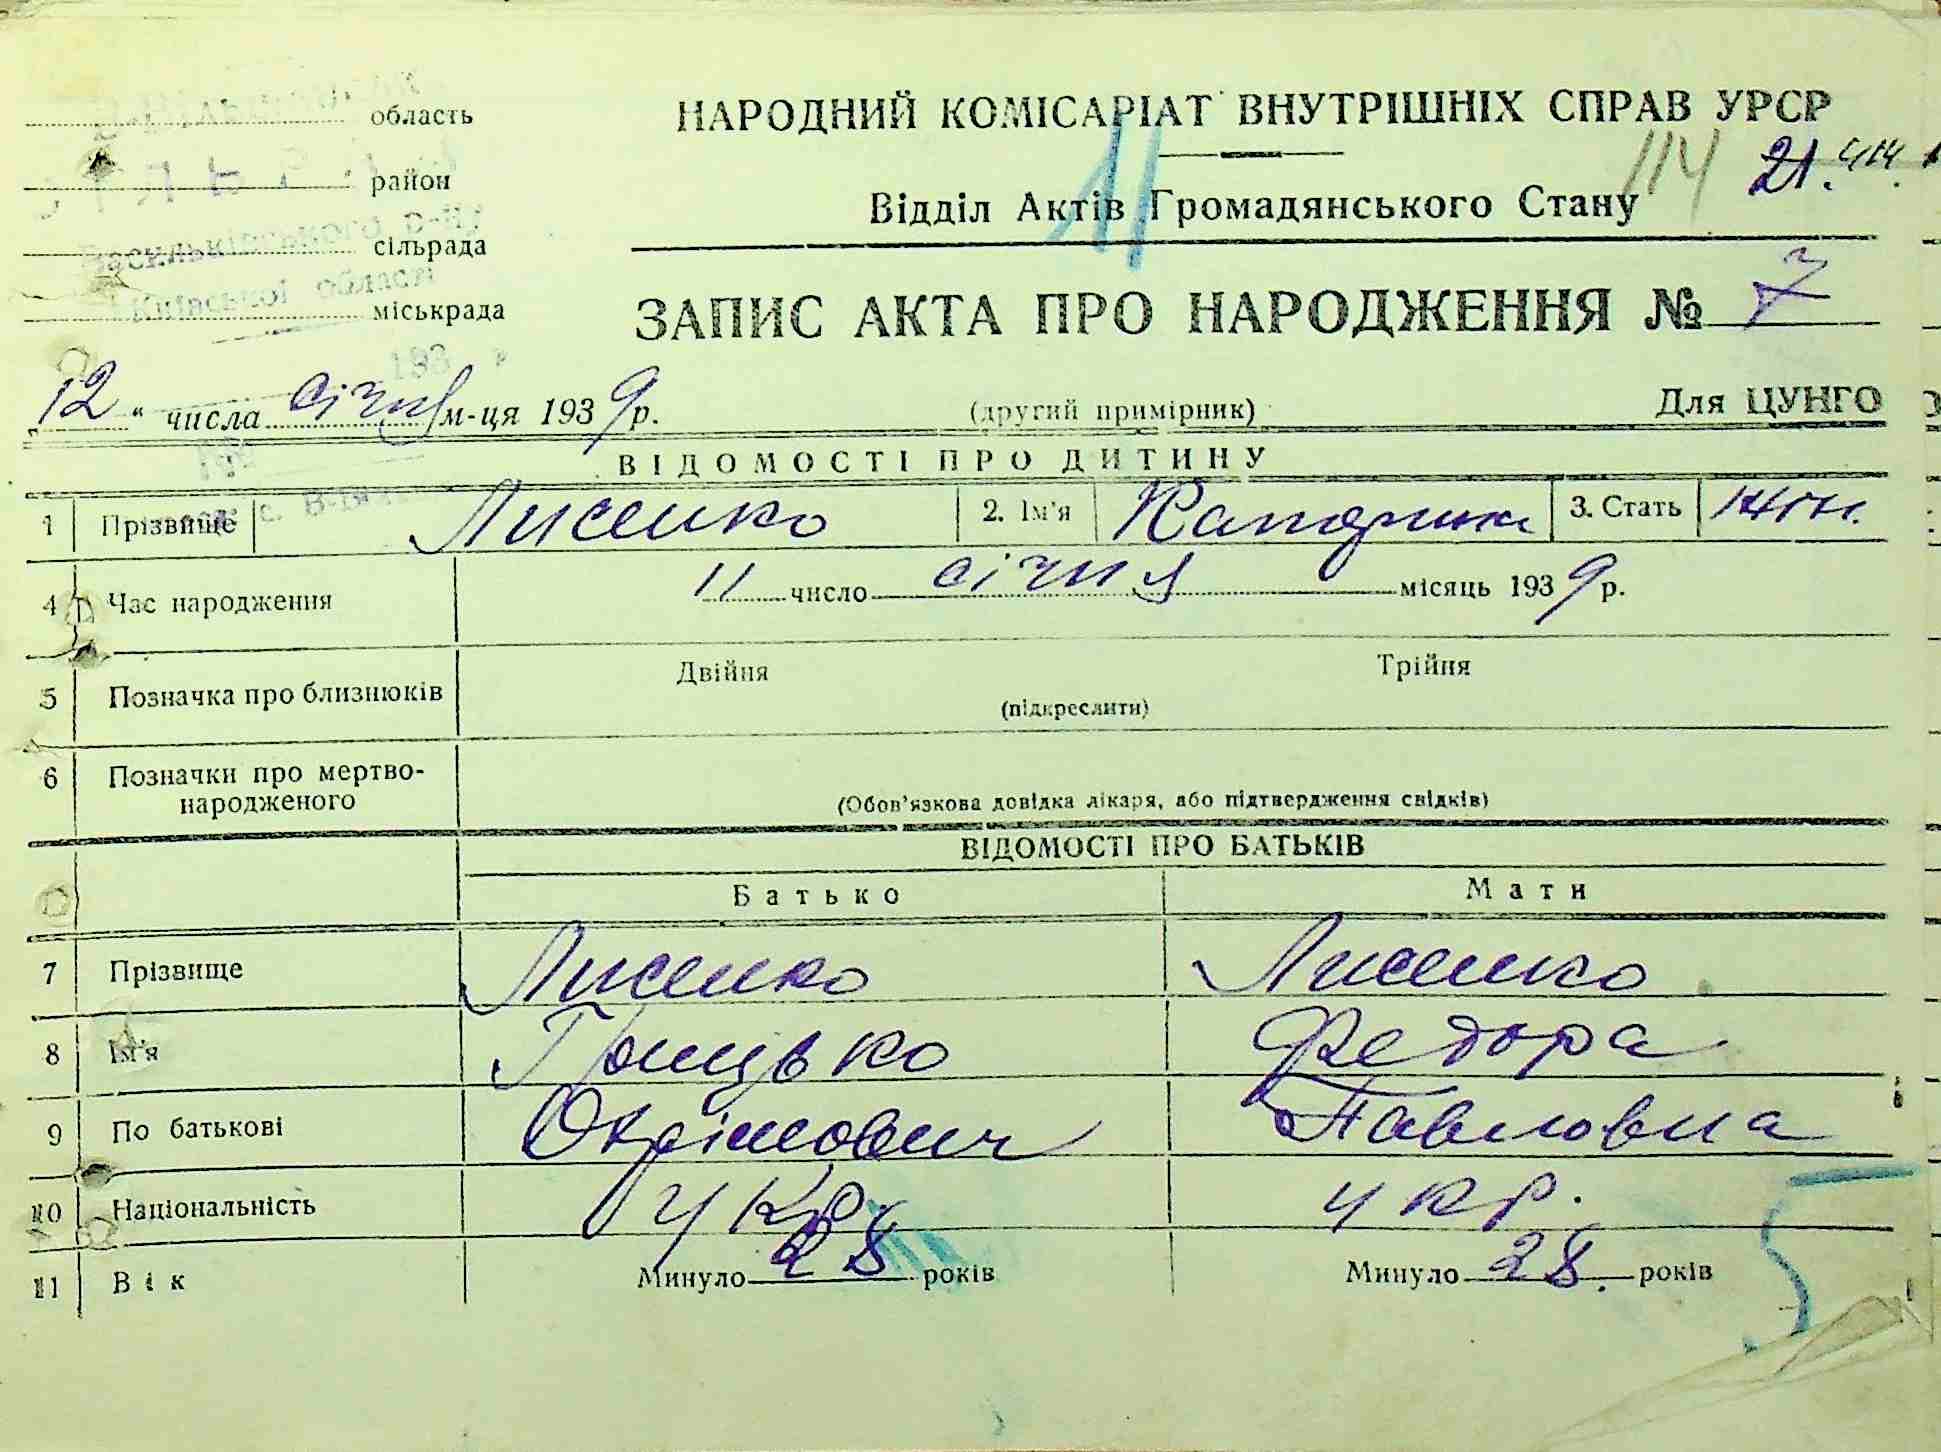 область
район
Васильківського р-ну
сільрада
Київської області
міськрада
193
НАРОДНИЙ КОМІСАРІАТ ВНУТРІШНІХ СПРАВ УРСР
11
114
21.
Відділ Актів Громадянського Стану
ЗАПИС АКТА ПРО НАРОДЖЕННЯ № 7
„12“ числа січня м-ця 1939 р.
(другий примірник)
Для ЦУНГО
ВІДОМОСТІ ПРО ДИТИНУ
1 Прізвище Лисенко 2. Ім'я Катерина 3. Стать жін.
4 Час народження 11 число січня місяць 1939 р.
5 Позначка про близнюків Двійня Трійня
(підкреслити)
6 Позначки про мертво-
народженого
(Обов'язкова довідка лікаря, або підтвердження свідків)
ВІДОМОСТІ ПРО БАТЬКІВ
Батько Мати
7 Прізвище Лисенко Лисенко
8 Ім'я Грицько Федора
9 По батькові Охрімович Павловна
10 Національність укр. укр.
11 Вік Минуло 28 років Минуло 28. років
5